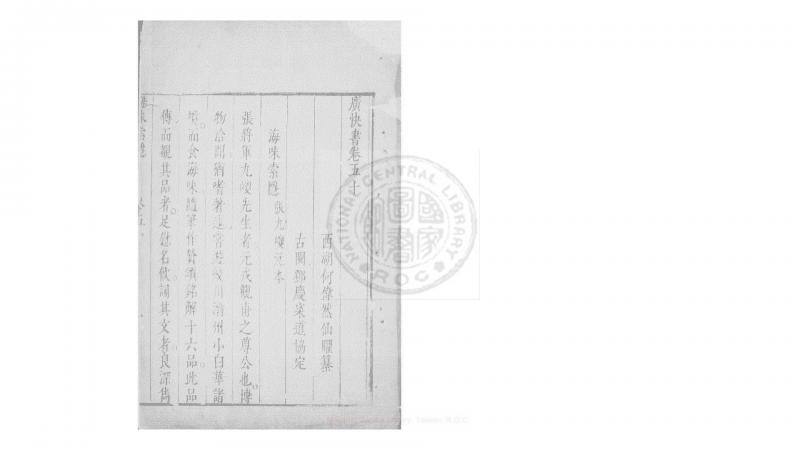 廣快書卷五十
西湖何偉然仙臞纂
古閩鄭慶寀道協定
海味索隱 張九嵕元本
張將軍九嵕先生者元戎觀甫之尊公也博
物洽聞猶嗜著述嘗遊 川 州小白華諸
境而食海味隨筆作贊頌銘解十六品此品
傳而觀其品者足 名 詞其文者良深雋
NATIONAL CENTRAL LIBRARY
國家圖書館
R.O.C.
Taiwan R.O.C